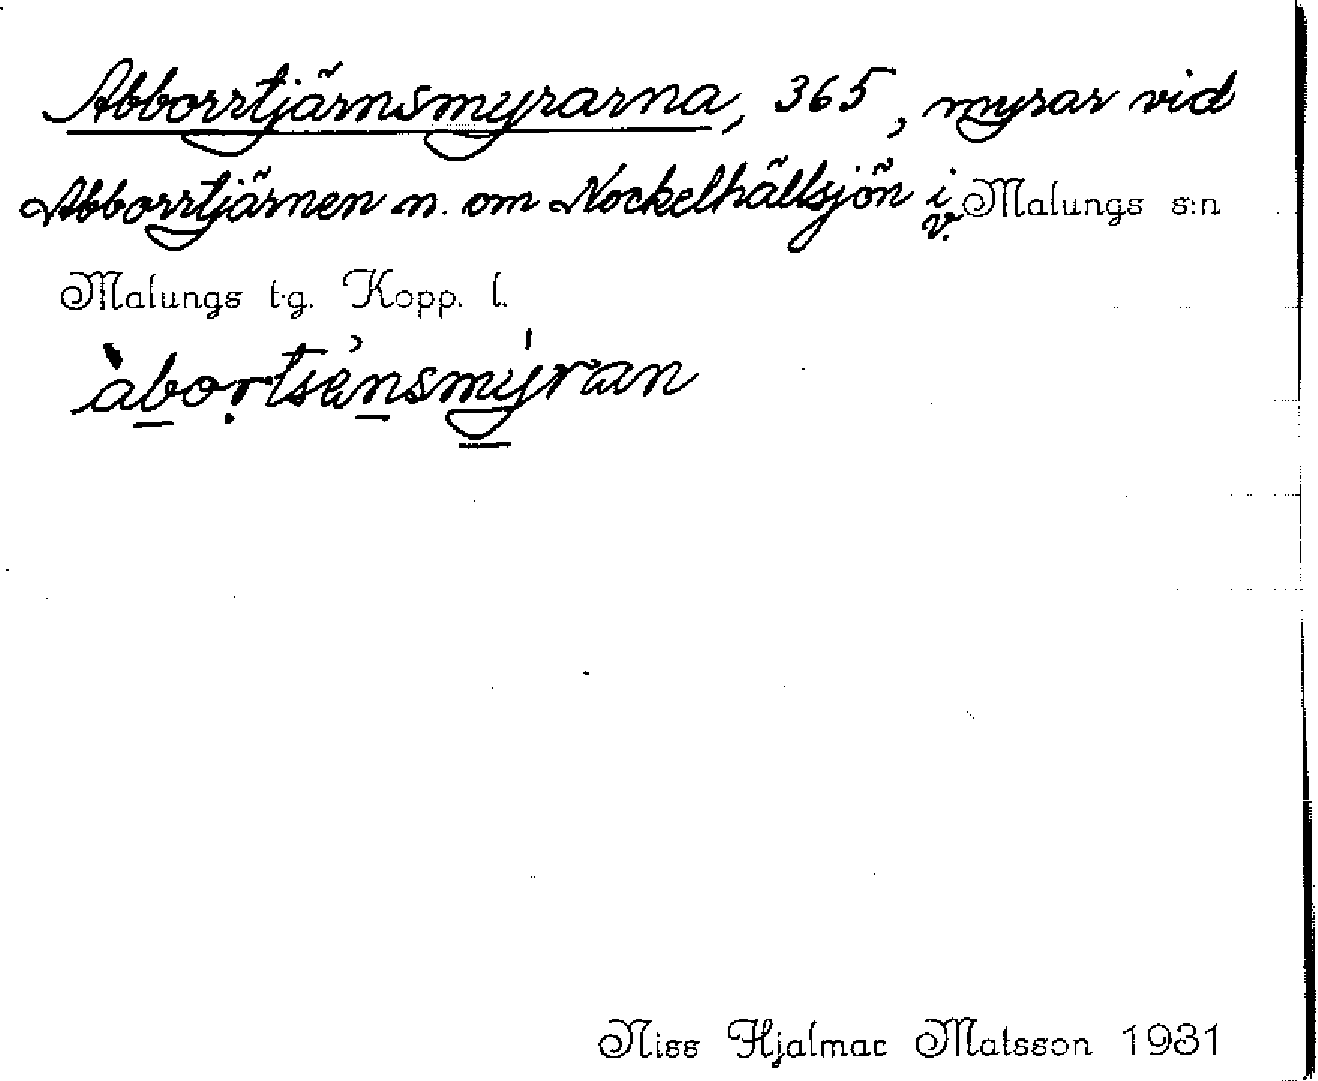 Abborrtjärnsmyrarna, 365, myrar vid
Abborrtjärnen n. om Nockelhällsjön i v. Malungs s:n
Malungs tg. Kopp. l.
àbortsénsmýran
Niss Hjalmar Matsson 1931